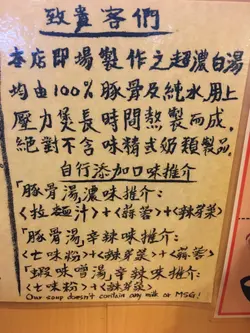 致貴客們
本店即場製作之超濃白湯
均由100%豚骨及純水用上
壓力煲長時間熬製而成,
絕對不含味精或奶類製品。
自行添加口味推介
「豚骨湯,濃味推介:
<拉麵汁>+<蒜蓉>+<辣芽菜>
「豚骨湯,辛辣味推介:
<七味粉>+<辣芽菜>+<蒜蓉>
「蝦味噌湯,辛辣味推介:
<七味粉>+<辣芽菜>
Our soup doesn't contain any milk or MSG!